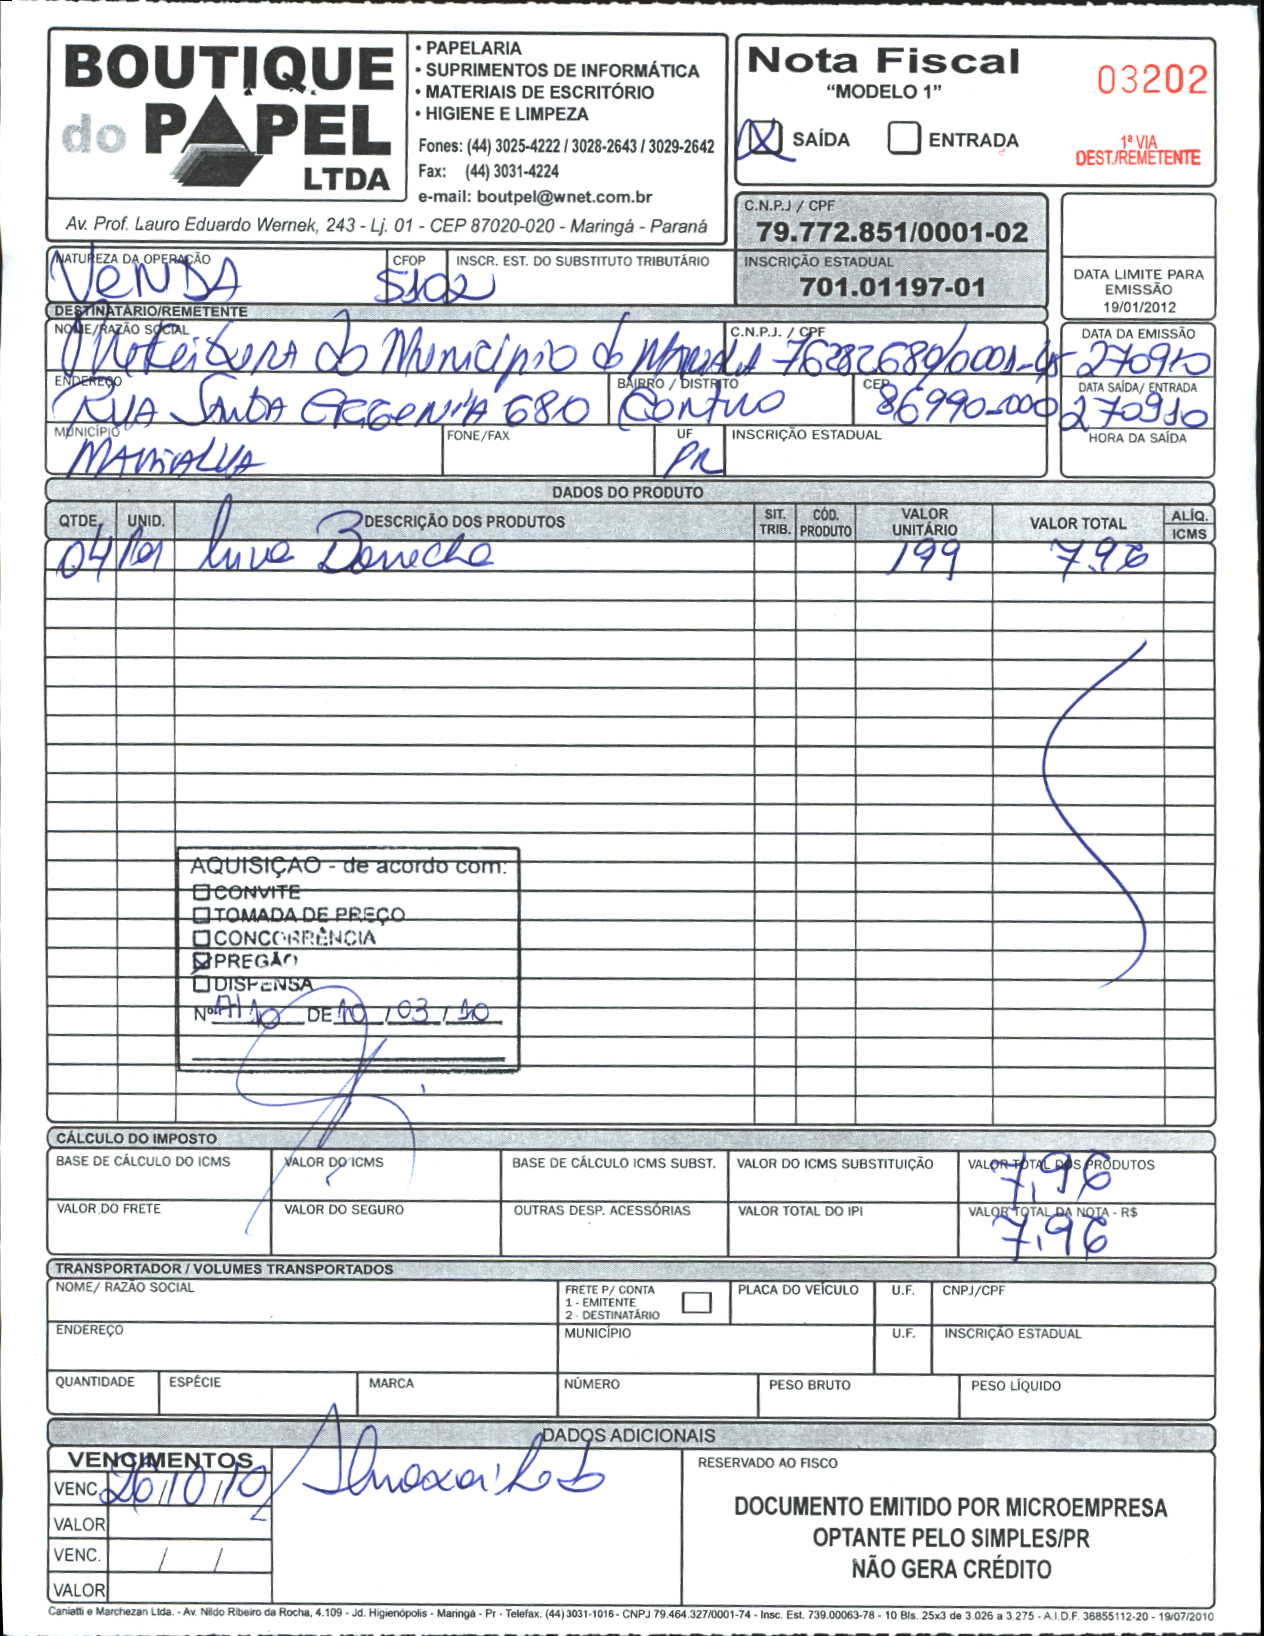 BOUTIQUE
do PAPEL
LTDA
• PAPELARIA
• SUPRIMENTOS DE INFORMÁTICA
• MATERIAIS DE ESCRITÓRIO
• HIGIENE E LIMPEZA
Fones: (44) 3025-4222 / 3028-2643 / 3029-2642
Fax: (44) 3031-4224
e-mail: boutpel@wnet.com.br
Av. Prof. Lauro Eduardo Wernek, 243 - Lj. 01 - CEP 87020-020 - Maringá - Paraná
Nota Fiscal
"MODELO 1"
03202
X SAÍDA ENTRADA
1ª VIA
DEST./REMETENTE
C.N.P.J / CPF
79.772.851/0001-02
INSCRIÇÃO ESTADUAL
701.01197-01
DATA LIMITE PARA
EMISSÃO
19/01/2012
NATUREZA DA OPERAÇÃO CFOP INSCR. EST. DO SUBSTITUTO TRIBUTÁRIO
VENDA 5102
DESTINATÁRIO/REMETENTE
NOME/RAZÃO SOCIAL C.N.P.J. / CPF DATA DA EMISSÃO
Prefeitura do Município de Marialva 76282680/0001-45 270910
ENDEREÇO BAIRRO / DISTRITO CEP DATA SAÍDA/ ENTRADA
RUA Santa Efigenia 680 Centro 86990-000 270910
MUNICÍPIO FONE/FAX UF INSCRIÇÃO ESTADUAL HORA DA SAÍDA
MARIALVA PR
DADOS DO PRODUTO
QTDE. UNID. DESCRIÇÃO DOS PRODUTOS SIT. TRIB. CÓD. PRODUTO VALOR UNITÁRIO VALOR TOTAL ALÍQ. ICMS
04 luva Borracha 199 7.96
AQUISIÇÃO - de acordo com:
CONVITE
TOMADA DE PREÇO
CONCORRÊNCIA
X PREGÃO
DISPENSA
Nº DE 10 / 03 / 10
CÁLCULO DO IMPOSTO
BASE DE CÁLCULO DO ICMS VALOR DO ICMS BASE DE CÁLCULO ICMS SUBST. VALOR DO ICMS SUBSTITUIÇÃO VALOR TOTAL DOS PRODUTOS
7,96
VALOR DO FRETE VALOR DO SEGURO OUTRAS DESP. ACESSÓRIAS VALOR TOTAL DO IPI VALOR TOTAL DA NOTA - R$
7,96
TRANSPORTADOR / VOLUMES TRANSPORTADOS
NOME/ RAZÃO SOCIAL FRETE P/ CONTA PLACA DO VEÍCULO U.F. CNPJ/CPF
1 - EMITENTE
2 - DESTINATÁRIO
ENDEREÇO MUNICÍPIO U.F. INSCRIÇÃO ESTADUAL
QUANTIDADE ESPÉCIE MARCA NÚMERO PESO BRUTO PESO LÍQUIDO
DADOS ADICIONAIS
VENCIMENTOS
VENC. 26/10/10
VALOR
VENC. / /
VALOR
Almoxarifado
RESERVADO AO FISCO
DOCUMENTO EMITIDO POR MICROEMPRESA
OPTANTE PELO SIMPLES/PR
NÃO GERA CRÉDITO
Caniatti e Marchezan Ltda. - Av. Nildo Ribeiro da Rocha, 4.109 - Jd. Higienópolis - Maringá - Pr - Telefax. (44) 3031-1016 - CNPJ 79.464.327/0001-74 - Insc. Est. 739.00063-78 - 10 Bls. 25x3 de 3.026 a 3.275 - A.I.D.F. 36855112-20 - 19/07/2010